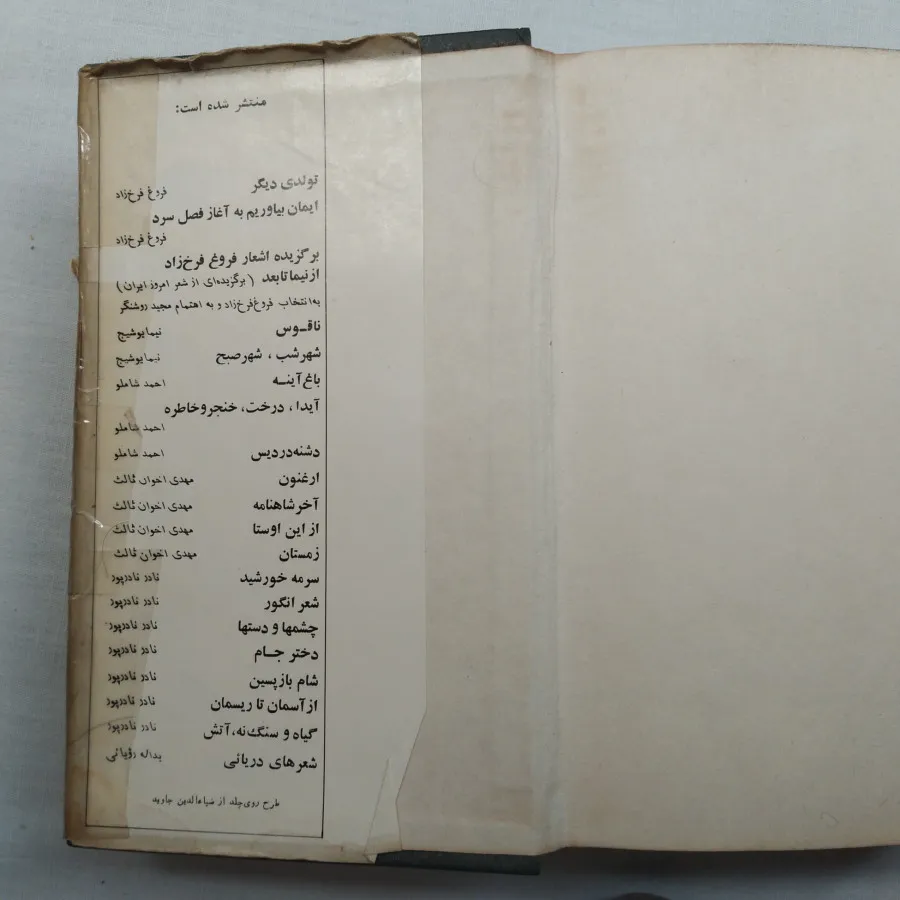 منتشر شده است:
تولدی دیگر فروغ فرخ‌زاد
ایمان بیاوریم به آغاز فصل سرد
فروغ فرخ‌زاد
برگزیده اشعار فروغ فرخ‌زاد
از نیما تا بعد (برگزیده‌ای از شعر امروز ایران)
به‌انتخاب فروغ‌فرخ‌زاد و به اهتمام مجید روشنگر
ناقـوس نیما یوشیج
شهرشب ، شهرصبح نیما یوشیج
باغ‌آینـه احمد شاملو
آیدا ، درخت، خنجر و خاطره
احمد شاملو
دشنه‌در‌دیس احمد شاملو
ارغنون مهدی اخوان ثالث
آخر شاهنامه مهدی اخوان ثالث
از این اوستا مهدی اخوان ثالث
زمستان مهدی اخوان ثالث
سرمه خورشید نادر نادرپور
شعر انگور نادر نادرپور
چشمها و دستها نادر نادرپور
دختر جـام نادر نادرپور
شام بازپسین نادر نادرپور
از آسمان تا ریسمان نادر نادرپور
گیاه و سنگ نه، آتش نادر نادرپور
شعرهای دریائی یداله رؤیائی
طرح روی جلد از ضیاءالدین جاوید